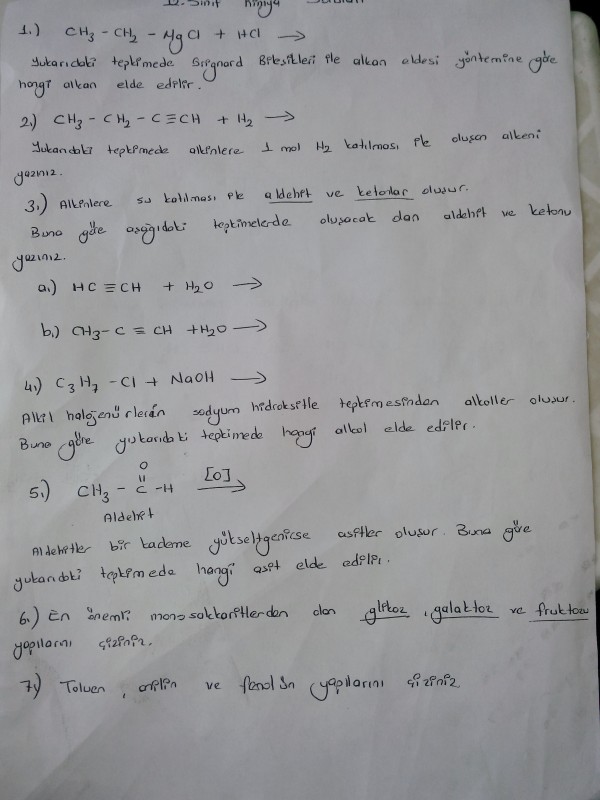 12. Sınıf Kimya Soruları
1.) CH3 - CH2 - MgCl + HCl →
Yukarıdaki tepkimede Grignard Bileşikleri ile alkan eldesi yöntemine göre
hangi alkan elde edilir.
2.) CH3 - CH2 - C ≡ CH + H2 →
Yukarıdaki tepkimede alkinlere 1 mol H2 katılması ile oluşan alkeni
yazınız.
3.) Alkinlere su katılması ile aldehit ve ketonlar oluşur.
Buna göre aşağıdaki tepkimelerde oluşacak olan aldehit ve ketonu
yazınız.
a.) HC ≡ CH + H2O →
b.) CH3 - C ≡ CH + H2O →
4.) C3H7 - Cl + NaOH →
Alkil halojenürlerin sodyum hidroksitle tepkimesinden alkoller oluşur.
Buna göre yukarıdaki tepkimede hangi alkol elde edilir.
O
||
5.) CH3 - C - H [O] →
Aldehit
Aldehitler bir kademe yükseltgenirse asitler oluşur. Buna göre
yukarıdaki tepkimede hangi asit elde edilir.
6.) En önemli monosakkaritlerden olan glikoz, galaktoz ve fruktozu
yapılarını çiziniz.
7.) Toluen, anilin ve fenolün yapılarını çiziniz